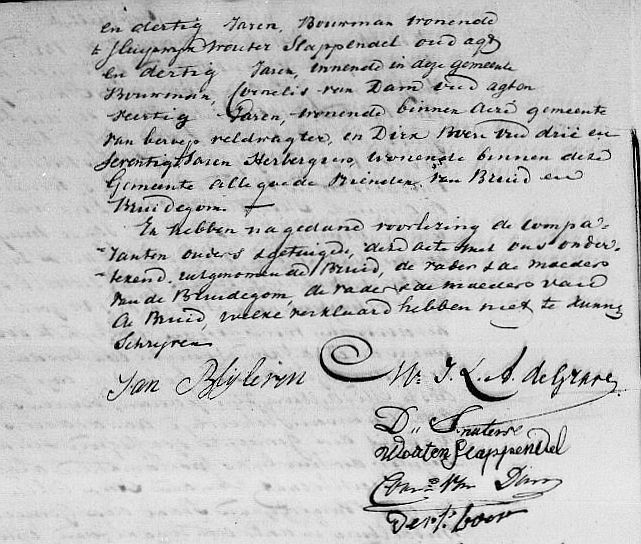 en dertig Jaren, Bouwman wonende
Wouter Slappendel oud agt
en dertig Jaren, wonende in deze gemeente
Bouwman, Cornelis van Dam oud agt en
veertig Jaren, wonende binnen deze gemeente
van beroep veldwagter, en Dirk Boer oud drie en
seventig Jaren Herbergier, wonende binnen deze
Gemeente alle goede Vrienden van Bruid en
Bruidegom.
En hebben na gedane voorlezing de Compa-
-ranten ouders & getuigen, deze acte met ons onder-
-tekend, uitgenomen de Bruid, de vader & de moeder
van de Bruidegom, de vader & de moeder van
de Bruid, welke verklaard hebben niet te kunnen
Schrijven
Jan Blijleven
Mr. J. L. A. de Grave
D.
Wouter Slappendel
Corn. van Dam